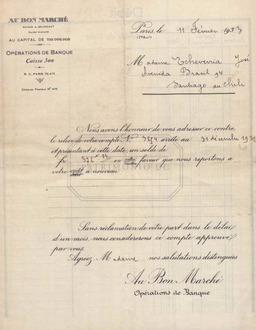 AU BON MARCHÉ
AU CAPITAL DE
OPÉRATIONS DE BANQUE
Caisse 500
R. C. PARIS
Paris, le 11 Février 1933
Madame Echeverria José
Avenida Brasil 94
Santiago du Chili
Nous avons l'honneur de vous adresser ci-contre
le relevé de votre compte N° arrêté au 31 décembre
et présentant à cette date, un solde de
en faveur que nous reportons à
votre à nouveau.
Sans réclamation de votre part dans le délai
d'un mois, nous considérerons ce compte approuvé
par vous.
Agréez, Madame nos salutations distinguées
Au Bon Marché
Opérations de Banque